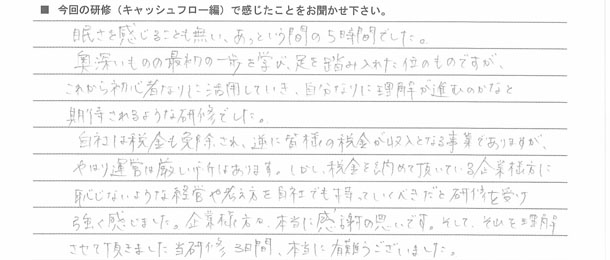 ■ 今回の研修（キャッシュフロー編）で感じたことをお聞かせ下さい。
眠さを感じることも無い、あっという間の5時間でした。
奥深いものの最初の一歩を学び、足を踏み入れた位のものですが、
これから初心者なりに活用していき、自分なりに理解が進むのかなと
期待されるような研修でした。
自社は税金も免除され、逆に皆様の税金が収入となる事業でありますが、
やはり運営は厳しい所はあります。しかし、税金を納めて頂いている企業様方に
恥じないような経営や考え方を自社でも持っていくべきだと研修を受け
強く感じました。企業様方々、本当に感謝の思いです。そして、それを理解
させて頂きました当研修3日間、本当に有難うございました。